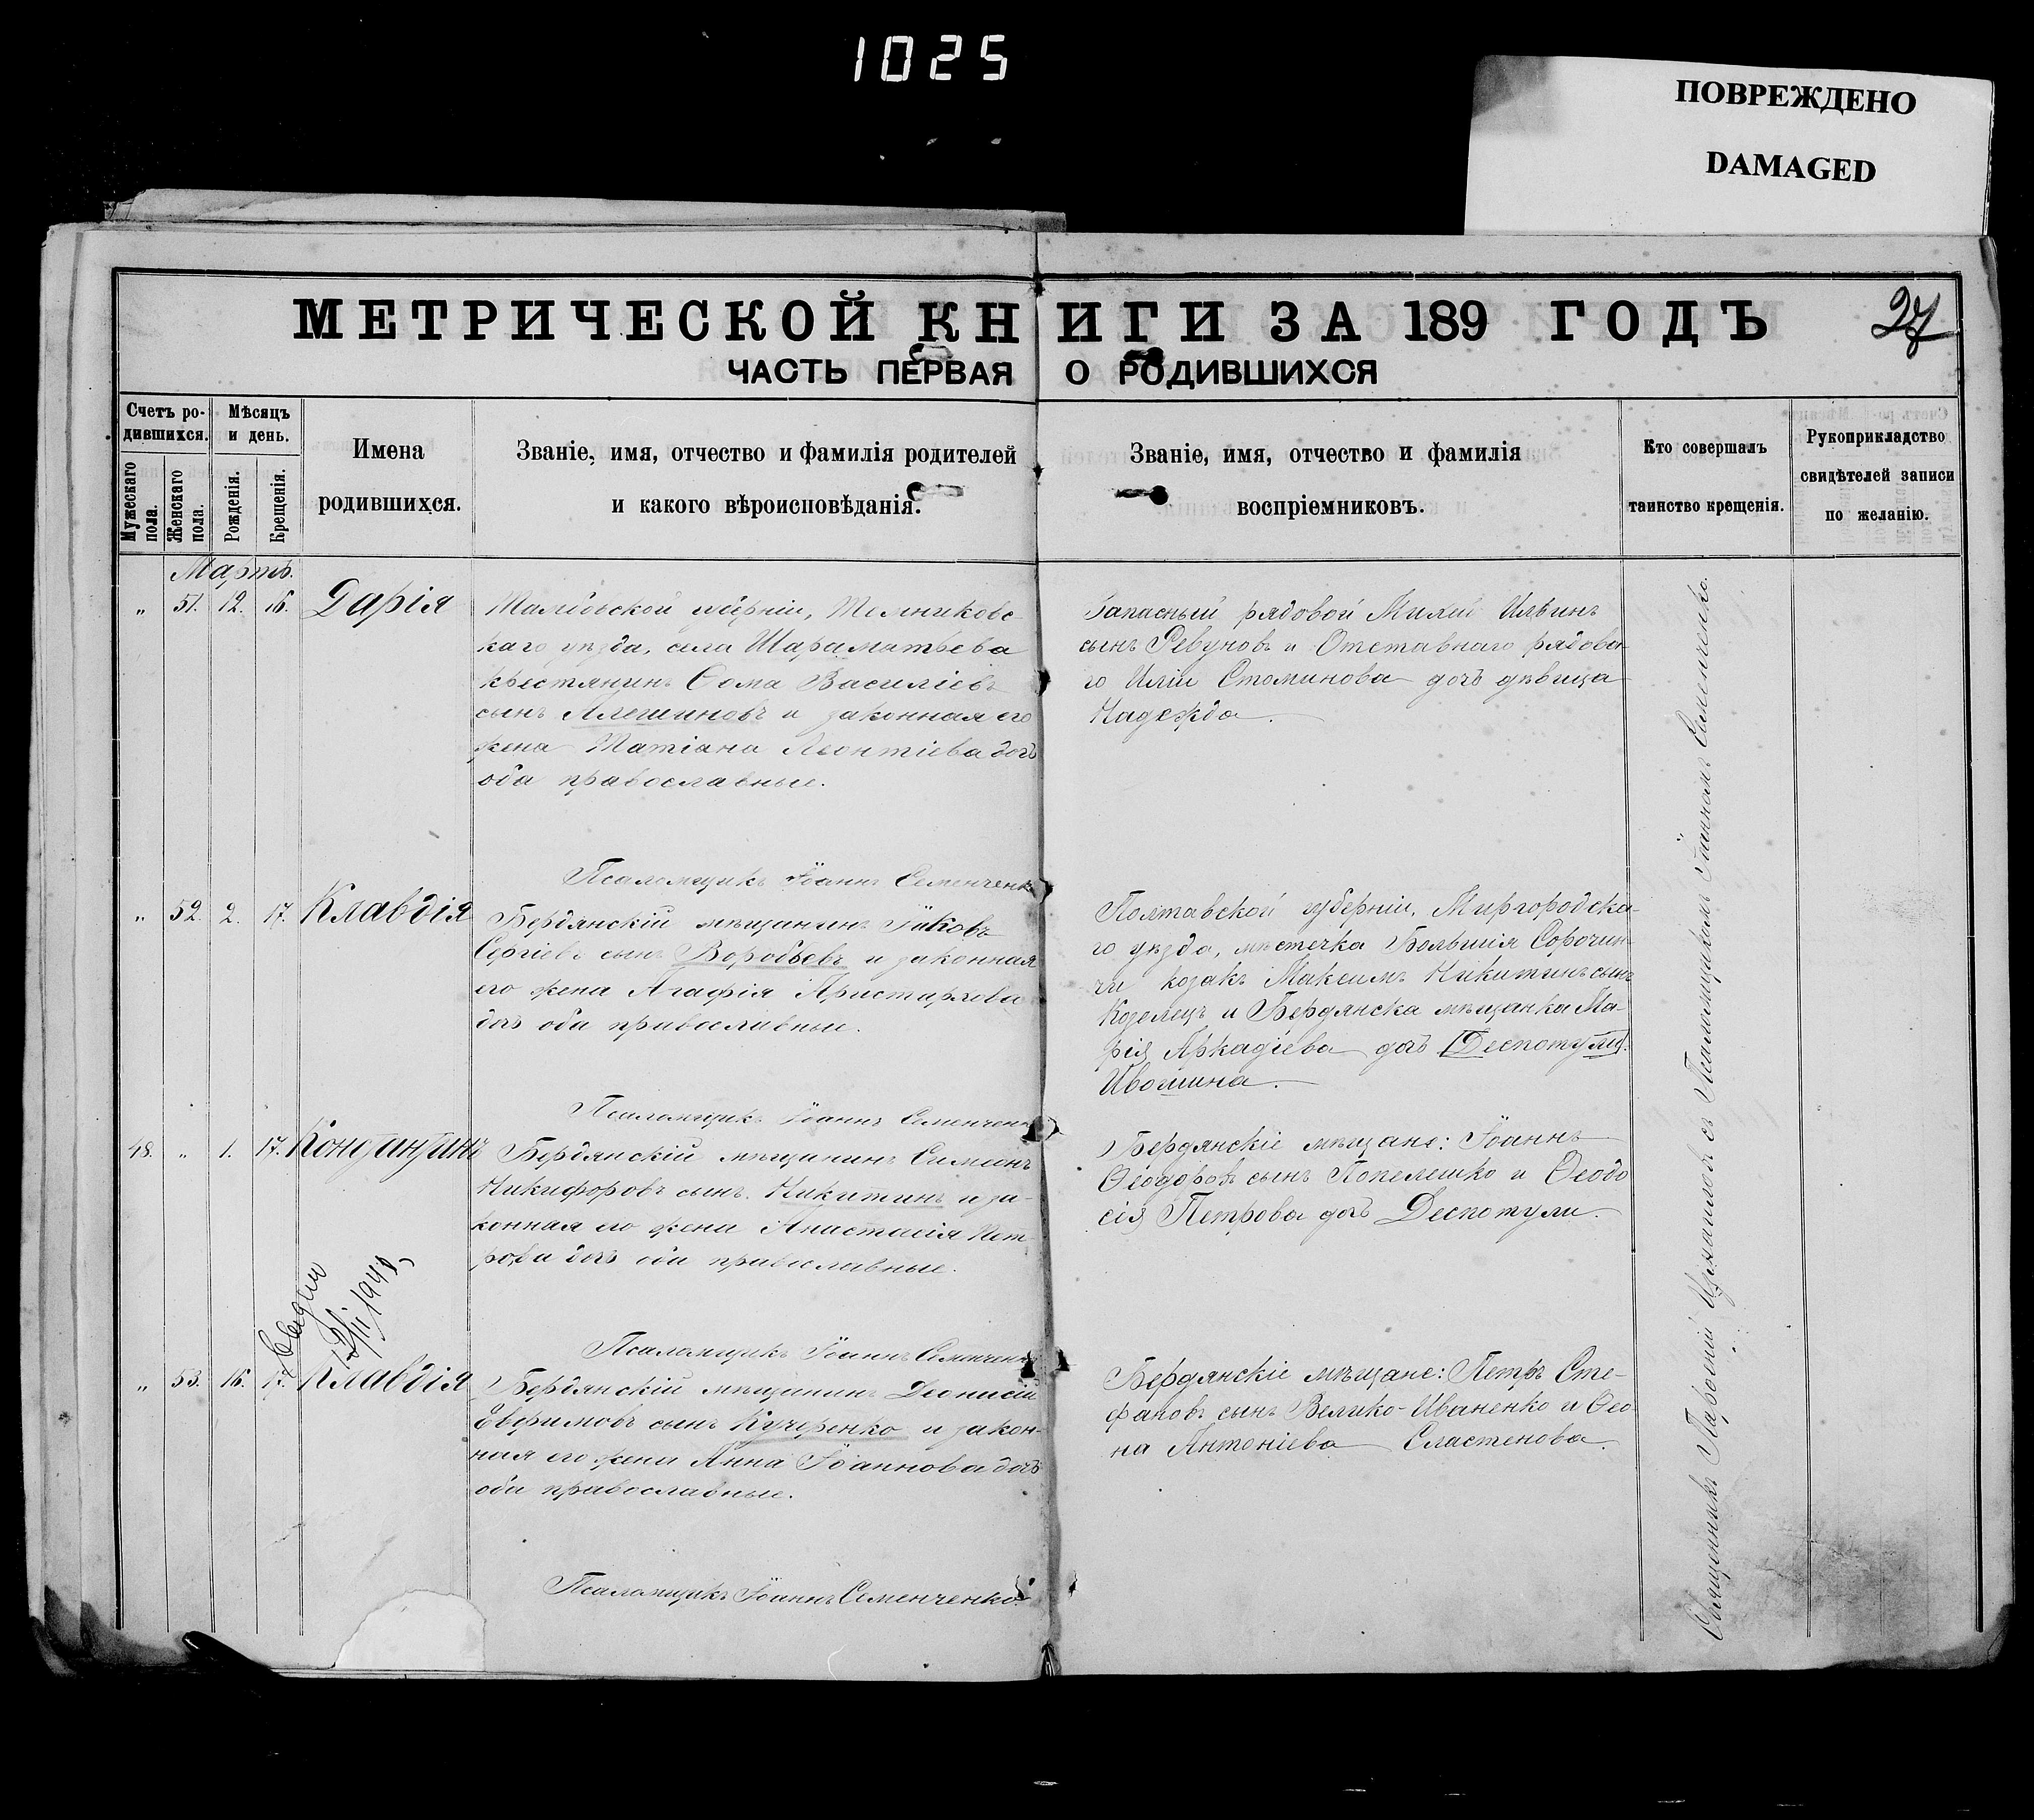 1025
ПОВРЕЖДЕНО
DAMAGED
МЕТРИЧЕСКОЙ КНИГИ ЗА 189 ГОДЪ
27
ЧАСТЬ ПЕРВАЯ О РОДИВШИХСЯ
Счетъ ро-
дившихся.
Мужескаго
пола.
Женскаго
пола.
Мѣсяцъ
и день.
Рожденія.
Крещенія.
Имена
родившихся.
Званіе, имя, отчество и фамилія родителей
и какого вѣроисповѣданія.
Званіе, имя, отчество и фамилія
воспріемниковъ.
Кто совершалъ
таинство крещенія.
Рукоприкладство
свидѣтелей записи
по желанію.
Мартъ.
„ 51. 12. 16. Дарія
губерніи,
каго уѣзда, села
крестянинъ Ѳома Василіевъ
сынъ Алешиновъ и законная его
жена Татіана Леонтіева дочь
оба православные.
Псаломщикъ Іоаннъ Семенченко
Запасный рядовой Ильинъ
сынъ Ревуновъ и Отставнаго рядова-
го Иліи Стоминова дочь дѣвица
Надежда.
„ 52. 2. 17. Клавдія
Бердянскій мѣщанинъ Іаковъ
Сергіевъ сынъ Воробьевъ и законная
его жена Агафія Аристархова
дочь оба православные.
Псаломщикъ Іоаннъ Семенченко
Полтавской губерніи, Миргородска-
го уѣзда, мѣстечка Большія Сорочин-
ци козакъ Максимъ Никитинъ сынъ
Козелецъ и Бердянска мѣщанка Ма-
рія Аркадіева дочь Деспотули
48. „ 1. 17. Константинъ
Бердянскій мѣщанинъ Симеонъ
Никифоровъ сынъ Никитинъ и за-
конная его жена Анастасія Пет-
рова дочь оба православные.
Псаломщикъ Іоаннъ Семенченко
Бердянскіе мѣщане: Іоаннъ
Ѳеодоровъ сынъ Попелешко и Ѳеодо
сія Петрова дочь Деспотули.
„ 53. 16. 17. Клавдія
Бердянскій мѣщанинъ Діонисій
Евфимовъ сынъ Кучеренко и закон-
ная его жена Анна Іоаннова дочь
оба православные.
Псаломщикъ Іоаннъ Семенченко
Бердянскіе мѣщане: Петръ Сте-
фановъ сынъ Велико-Иваненко и Ѳео-
на Антоніева Сластенова.
Священникъ Парѳеній съ Псаломщикомъ Іоанномъ Семенченко.